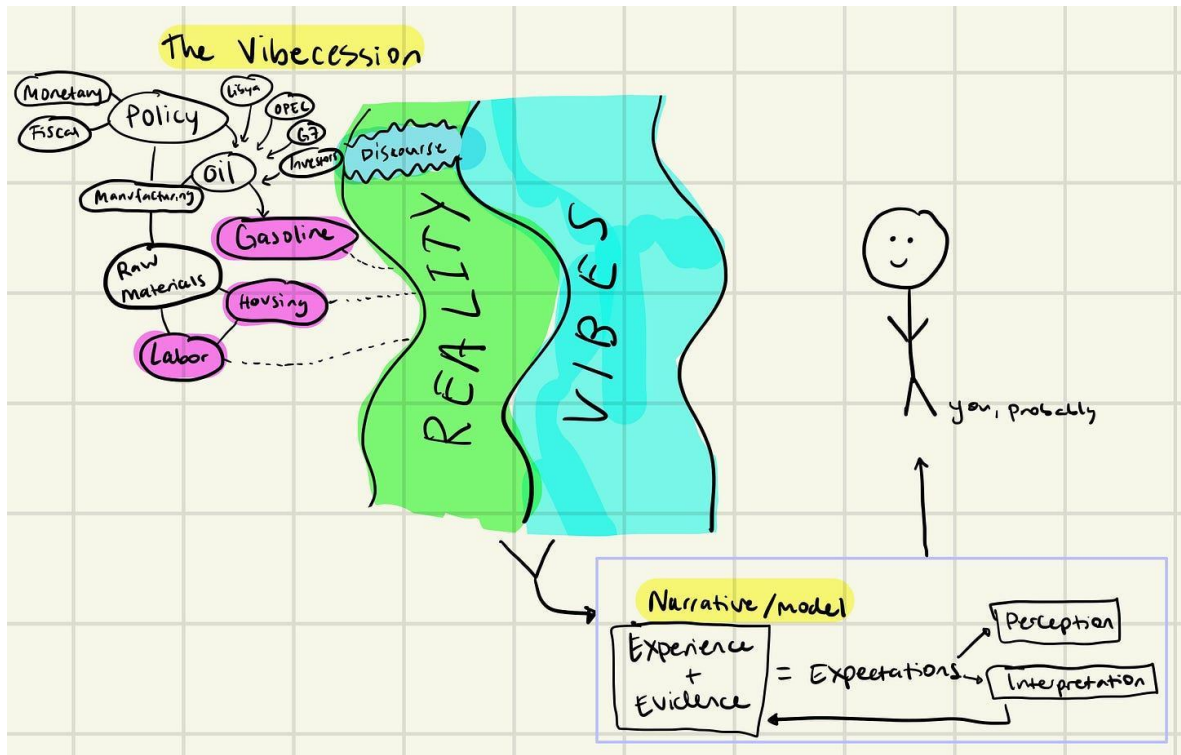 The Vibecession
Monetary
Fiscal
Policy
Libya
OPEC
G7
Investors
Oil
Manufacturing
Gasoline
Raw
Materials
Housing
Labor
Discourse
REALITY
VIBES
you, probably
Narrative/model
Experience
+
Evidence
= Expectations
Perception
Interpretation